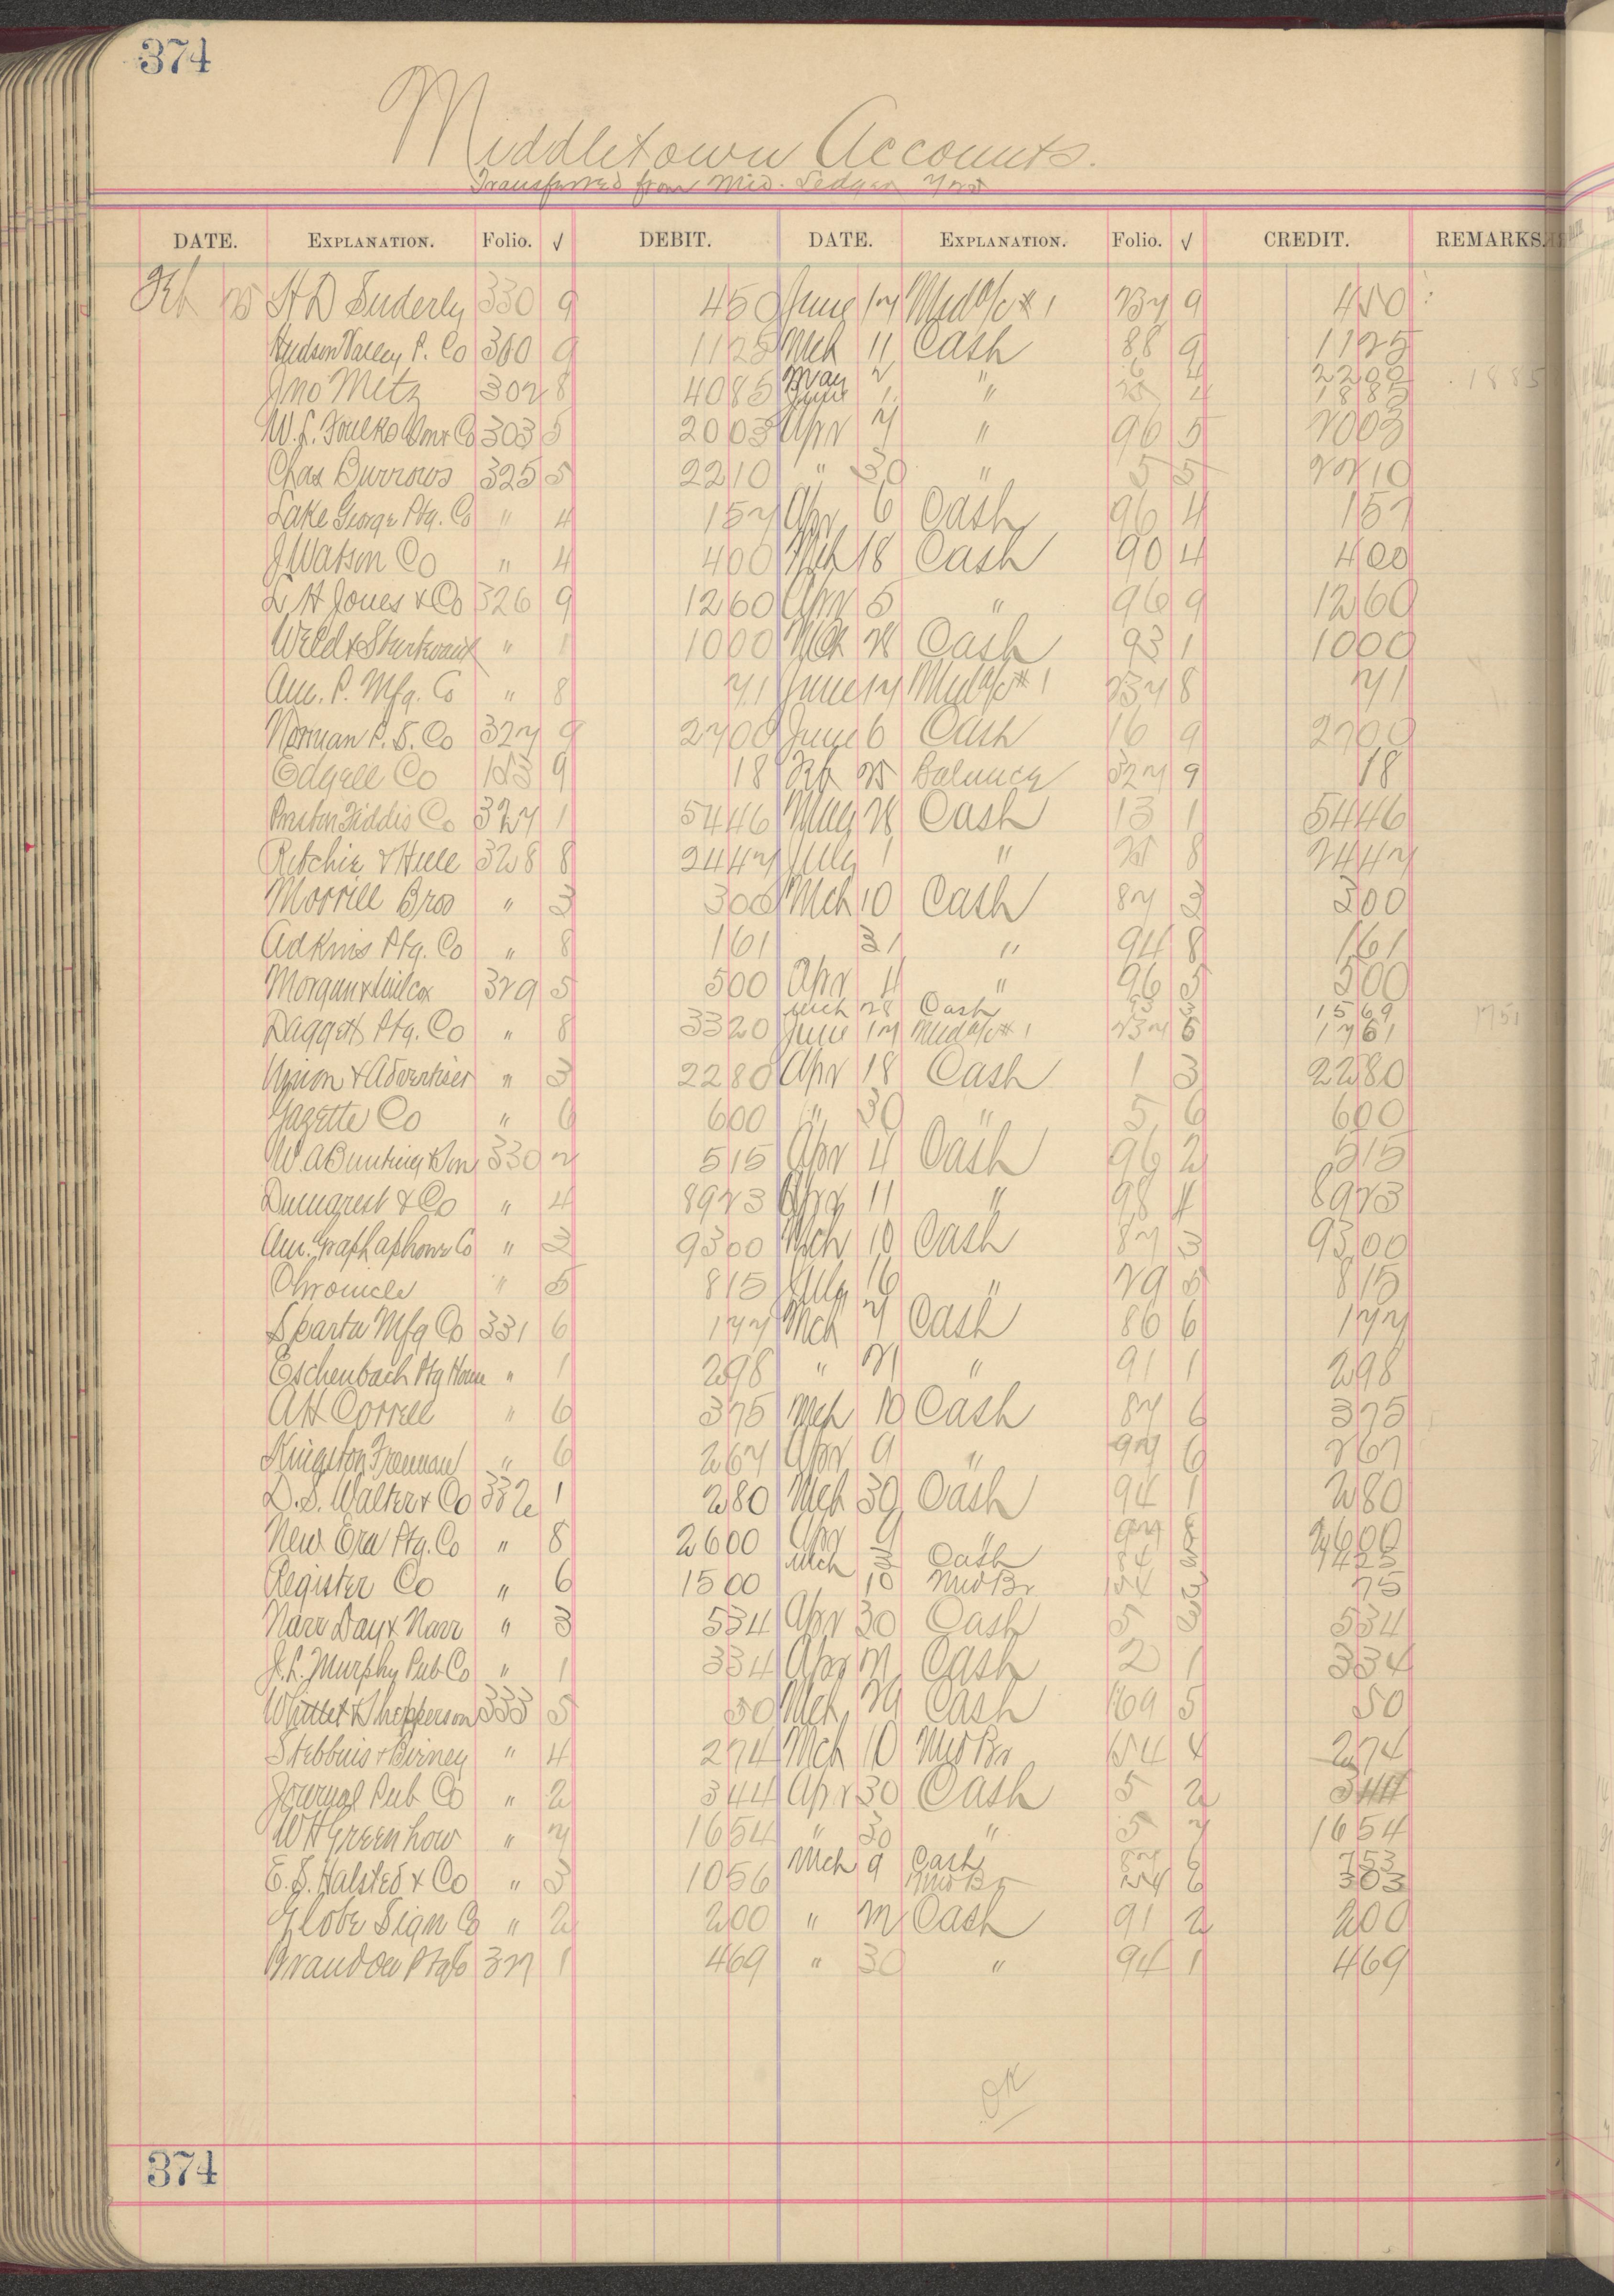 374
Middletown Accounts.
Transferred from Mid. Ledger
DATE. EXPLANATION. Folio. √ DEBIT. DATE. EXPLANATION. Folio. √ CREDIT. REMARKS.
Feb 25 H D Suderly 330 9 450 June 17 Mid a/c #1 237 9 450
Hudson Valley P. Co 360 9 1125 Mch 11 Cash 88 9 1125
Jno Metz 302 8 4085 May 2 " 6 4 2200
June 1 4 1885 1885
W. S. Foulks Son & Co 303 5 2003 Apr 7 " 96 5 2003
Chas Burrows 325 5 2210 " 30 " 5 5 2210
Lake George Ptg. Co " 4 157 Apr 6 Cash 96 4 157
J Watson Co " 4 400 Mch 18 Cash 90 4 400
L H Jones & Co 326 9 1260 Apr 5 " 96 9 1260
Weld & Sturtevant " 1 1000 Mch 28 Cash 93 1 1000
Am. P. Mfg. Co " 8 71 June 17 Mid a/c #1 237 8 71
Norman P. S. Co 327 9 2700 June 6 Cash 16 9 2700
Edgell Co 153 9 18 Feb 25 Balance 327 9 18
327 1 5446 May 28 Cash 13 1 5446
Ritchie & Hull 328 8 2447 July 1 " 25 8 2447
Morrill Bros " 3 300 Mch 10 Cash 87 3 300
Adkins Ptg. Co " 8 161 31 " 94 8 161
Morgan & Wilcox 329 5 500 Apr 4 " 96 5 500
Mch 28 Cash 93 3 1569
Daggett Ptg. Co " 8 3320 June 17 Mid a/c #1 237 5 1751 1751
Union & Advertiser " 3 2280 Apr 18 Cash 1 3 2280
Gazette Co " 6 600 " 30 " 5 6 600
W. A Bunting & Son 330 2 515 Apr 4 Cash 96 2 515
Dumarest & Co " 4 8923 Apr 11 " 98 4 8923
Am. Graphaphone Co " 3 9300 Mch 10 Cash 87 3 9300
Chronicle " 5 815 July 16 " 29 5 815
Sparta Mfg Co 331 6 177 Mch 7 Cash 86 6 177
Eschenbach Ptg House " 1 298 " 21 " 91 1 298
A H Correll " 6 375 Mch 10 Cash 87 6 375
Kingston Freeman " 6 267 Apr 9 " 97 6 267
D. S. Walter & Co 332 1 280 Mch 30 Cash 94 1 280
New Era Ptg. Co " 8 2600 Apr 9 " 97 8 2600
Mch 3 Cash 84 3 1425
Register Co " 6 1500 10 Mid Br 154 3 75
Narr Day & Narr " 3 534 Apr 30 Cash 5 3 534
J. L. Murphy Pub Co " 1 334 Apr 21 Cash 2 1 334
Whittet & Shepperson 333 5 50 Mch 29 Cash 169 5 50
Stebbins & Birney " 4 274 Mch 10 Mid Br 154 4 274
Journal Pub Co " 2 344 Apr 30 Cash 5 2 344
W H Greenhow " 7 1654 " 30 " 5 7 1654
Mch 9 Cash 87 6 753
E. S. Halsted & Co " 3 1056 Mid Br 154 6 303
Globe Sign Co " 2 200 " 21 Cash 91 2 200
Brandow Ptg Co 321 1 469 " 30 " 94 1 469
OK
374